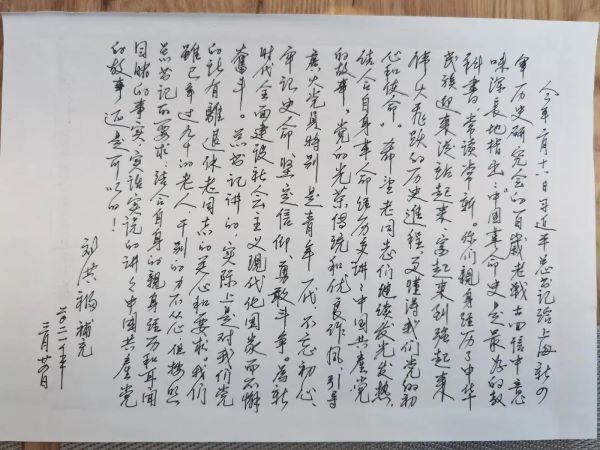 今年二月十八日习近平总书记给上海新四
军历史研究会的百歲老战士回信中意
味深長地指出:“中国革命史是最好的教
科书,常读常新。你们親身经历了中华
民族迎来從站起来、富起来到强起来
伟大飛跃的历史進程,更懂得我们党的初
心和使命。希望老同志们继续发光发热,
结合自身革命经历多讲讲中国共産党
的故事、党的光荣传统和优良作风,引导
廣大党員特别是青年一代,不忘初心、
牢记史命、坚定信仰、勇敢斗争。為新
时代全面建设社会主义现代化国家而不懈
奮斗。总书记讲的,实际上是对我们党
的所有離退休老同志的关心和要求。我们
雖已年过九十的老人,干别的力不从心但按照
总书记的要求,结合自身的親身经历和耳闻
目睹的事实,实话实说的讲讲中国共産党
的故事还是可以的!
刘洪福 補充
二〇二一年
三月廿日